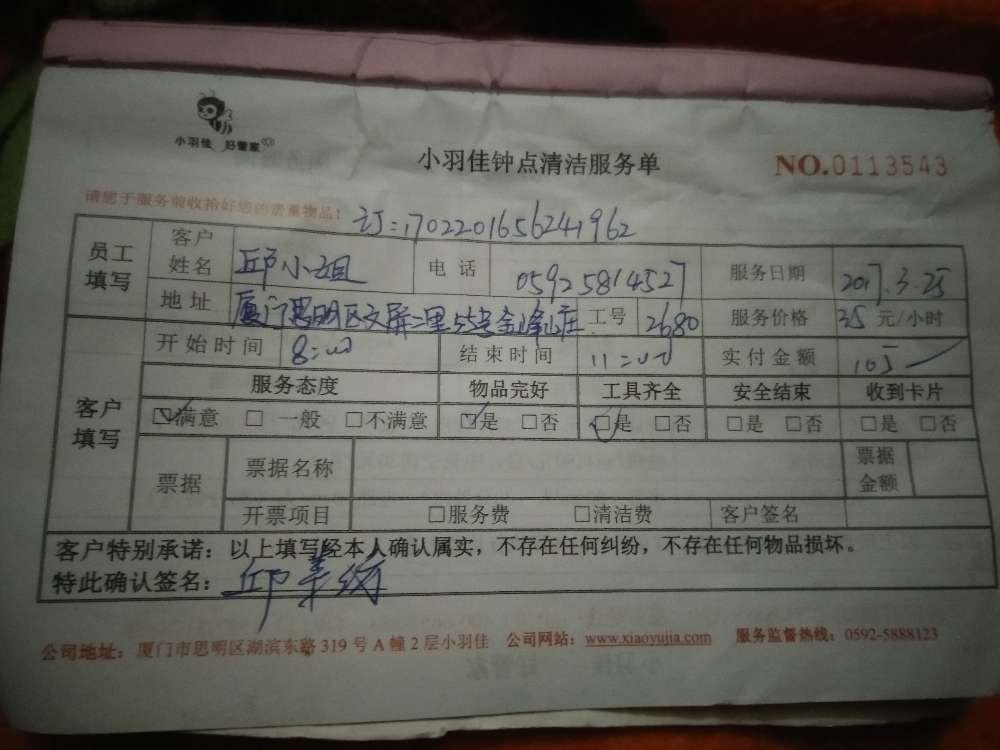 小羽佳 好管家
小羽佳钟点清洁服务单
NO.0113543
请您于服务前收拾好您的贵重物品!
订:1702201656241962
员工填写 客户姓名 邱小姐 电话 05925814527 服务日期 2017.3.25
地址 厦门思明区文屏二里55号金峰山庄 工号 2680 服务价格 35 元/小时
客户填写 开始时间 8:00 结束时间 11:00 实付金额 105
服务态度 物品完好 工具齐全 安全结束 收到卡片
☑满意 □一般 □不满意 ☑是 □否 ☑是 □否 □是 □否 □是 □否
票据 票据名称 票据金额
开票项目 □服务费 □清洁费 客户签名
客户特别承诺:以上填写经本人确认属实,不存在任何纠纷,不存在任何物品损坏。
特此确认签名:邱
公司地址:厦门市思明区湖滨东路319号A幢2层小羽佳 公司网站:www.xiaoyujia.com 服务监督热线:0592-5888123